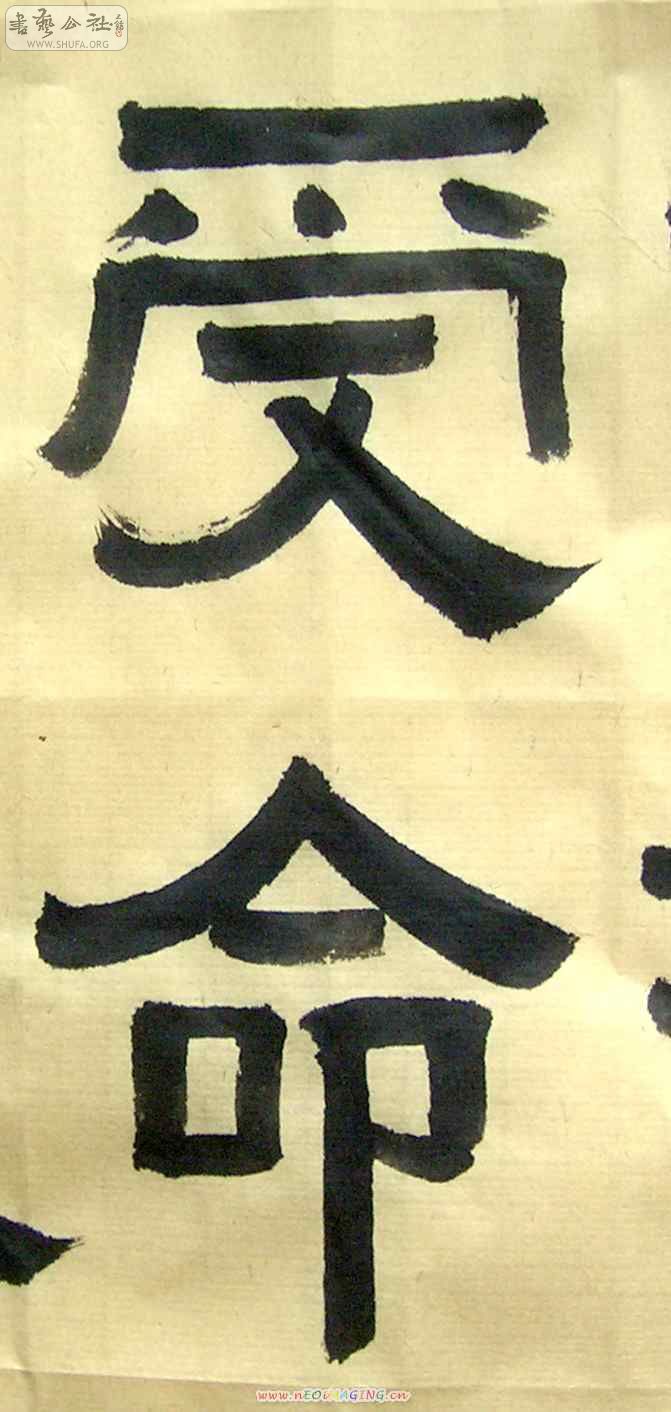 書藝公社
WWW.SHUFA.ORG
受
命
www.nEOiMAGING.cn